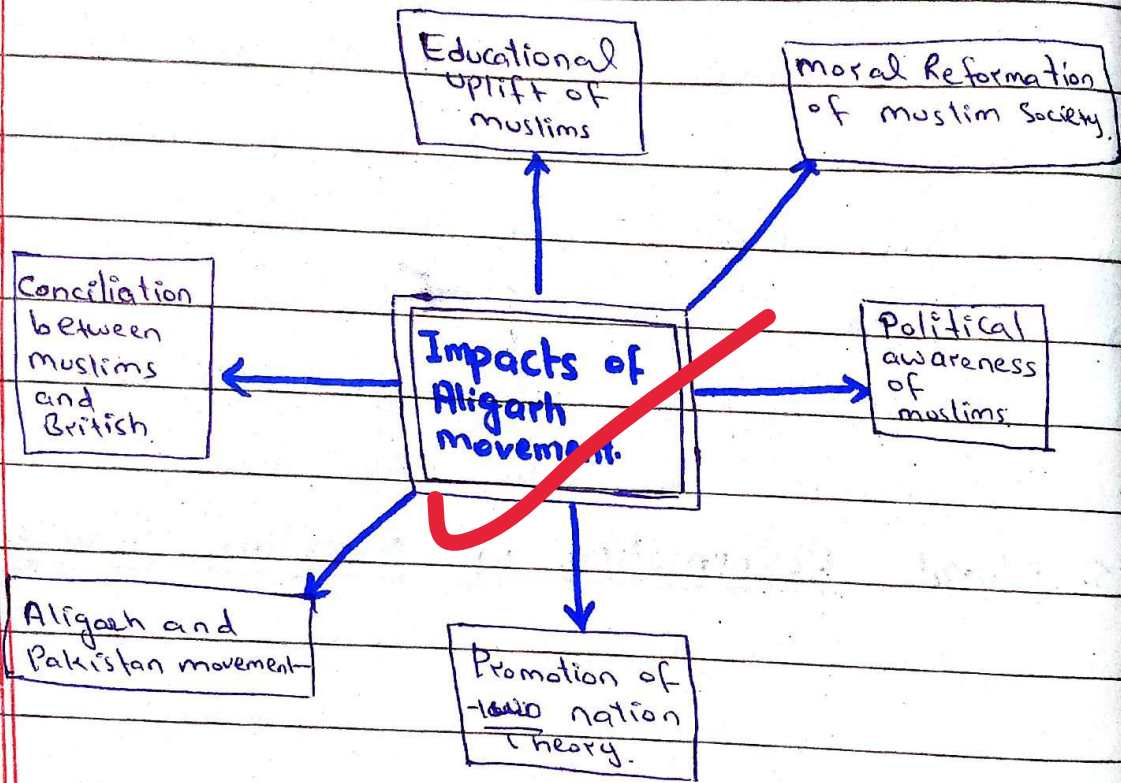 Educational
uplift of
muslims
Moral Reformation
of muslim Society.
Conciliation
between
muslims
and
British.
Impacts of
Aligarh
movement.
Political
awareness
of
muslims
Aligarh and
Pakistan movement
Promotion of
two nation
Theory.